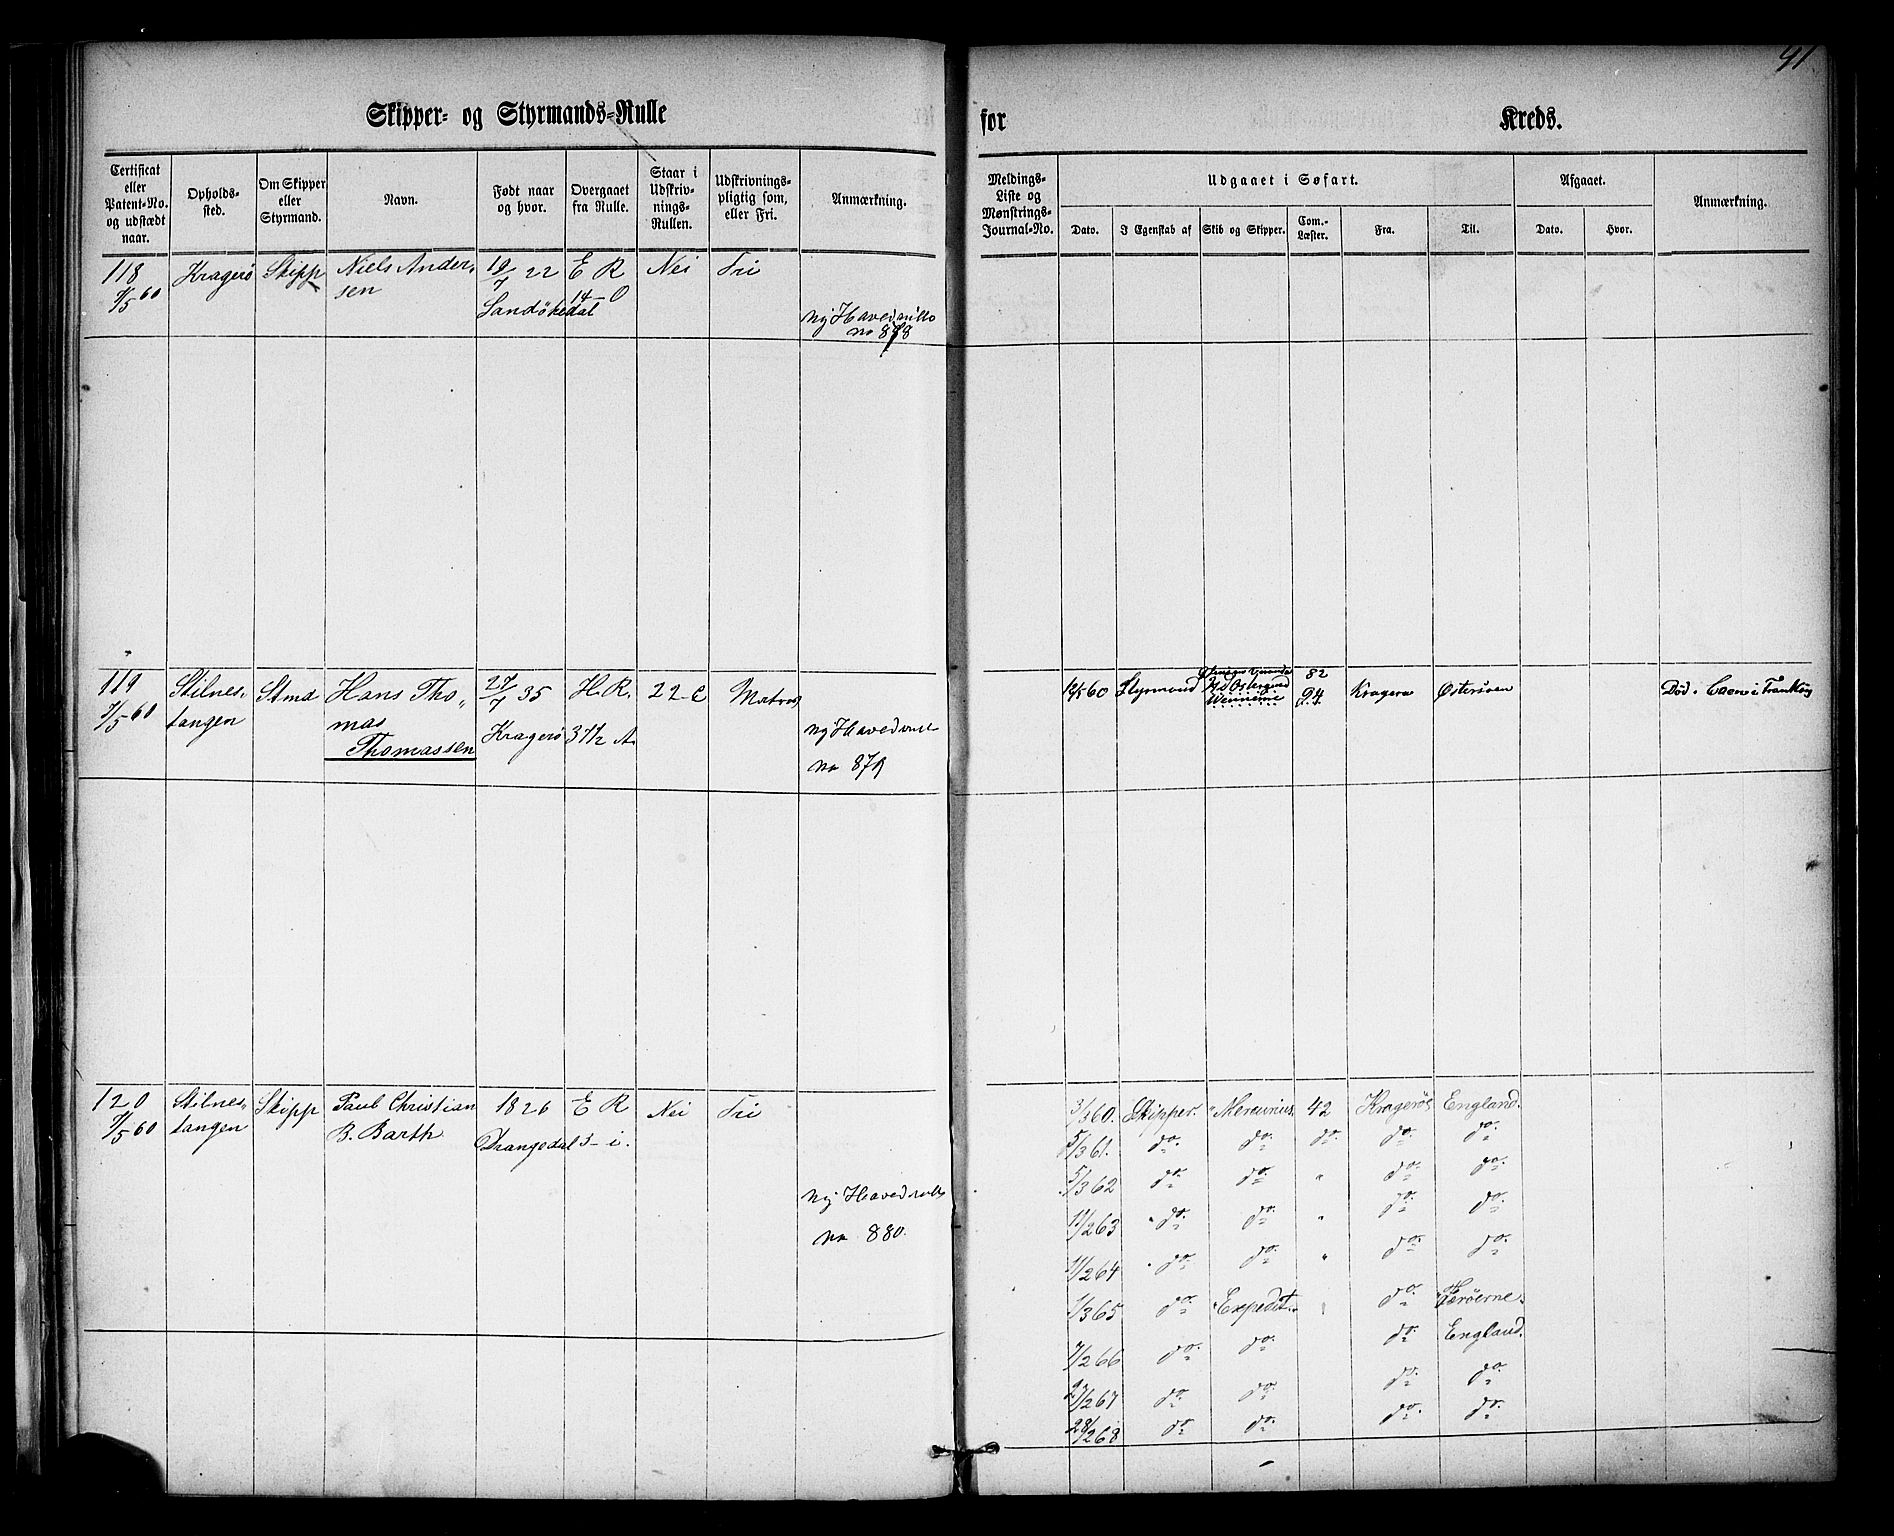 91
Skipper- og Styrmands-Rulle
for Kreds.
Certifikat eller Patent-No. og udstædt naar.
Opholds-sted.
Om Skipper eller Styrmand.
Navn.
Født naar og hvor.
Overgaaet fra Rulle.
Staar i Udskriv-nings-Rullen.
Udskrivnings-pligtig som, eller Fri.
Anmærkning.
Meldings-Liste og Mønstrings-Journal-No.
Udgaaet i Søfart.
Dato.
I Egenskab af
Skib og Skipper.
Com.-Læster.
Fra.
Til.
Afgaaet.
Dato.
Hvor.
Anmærkning.
118 Kragerø Skipp Niels Ander- 19/7 22 E R Nei Fri
7/5 60 sen Sandøkedal 14-0
Ny Hovedrulle
no 878
119 Stilnes- Stmd Hans Tho- 27/7 35 H. R. 22 C Matros
7/5 60 tangen mas Kragerø 37 1/2 A.
Thomassen
Ny Hovedrulle
no 879
60 Styrmand 82
94 Kragerø Østersøen Død i Caen i Frankrig
120 Stilnes- Skipp Paul Christian 1826 E R Nei Fri
7/5 60 tangen B. Barth Drangedal 3-i.
Ny Hovedrulle
no 880.
3/3 60. Skipper. Mercurius. 42 Kragerø England.
5/3 61. do. do. do. do. do.
5/3 62 do. do. " do. do.
11/2 63 do. do. " do. do.
11/2 64 do. do. " do. do.
1/3 65 do. Expedit. " do. Færøerne.
7/2 66 do. do. do. England.
27/2 67 do. do. do. do.
28/2 68 do. do. do. do.